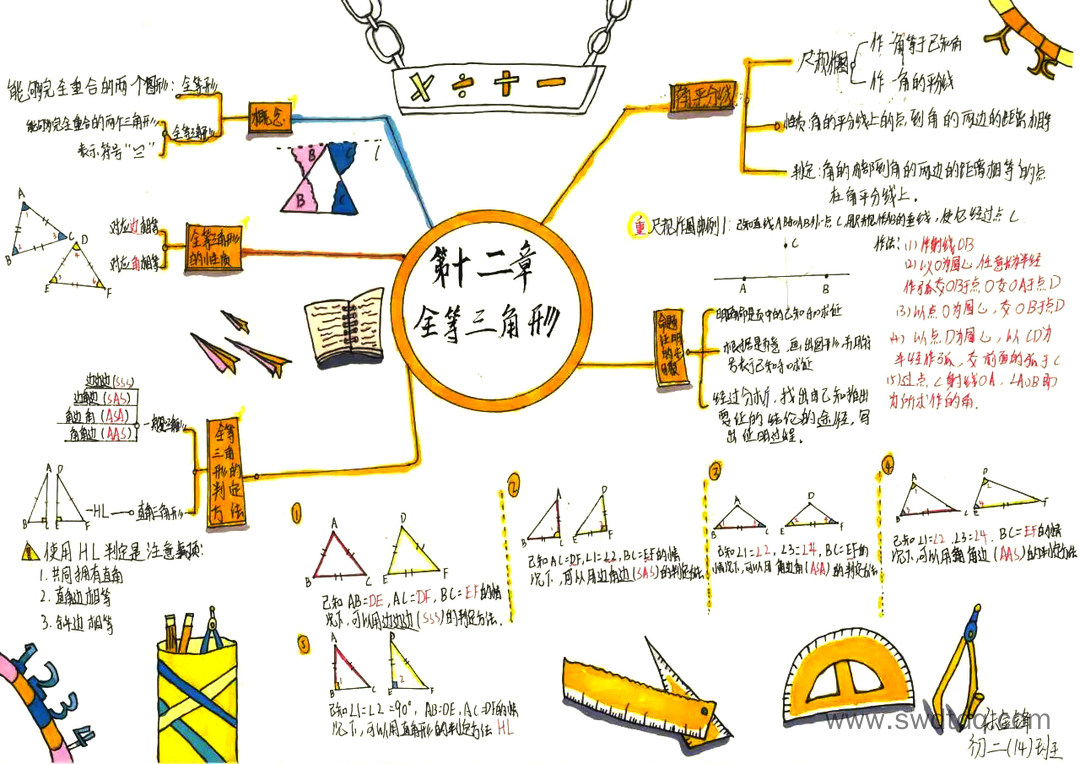 × ÷ + −
第十二章
全等三角形
概念
能够完全重合的两个图形：全等形
能够完全重合的两个三角形
全等三角形
表示符号"≌"
全等三角形
的性质
对应边相等
对应角相等
A
B
C
D
E
F
全等
三角
形的
判定
方法
边边边(SSS)
边角边(SAS)
角边角(ASA)
角角边(AAS)
一般三角形
HL
直角三角形
A D
B F
使用HL判定是注意事项：
1. 共同拥有直角
2. 直角边相等
3. 斜边相等
角平分线
尺规作图
作一角等于已知角
作一角的平分线
性质：角的平分线上的点到角的两边的距离相等
判定：角的内部到角的两边的距离相等的点
在角平分线上。
重
C
A B
作法：(1) 作射线OB
(2) 以O为圆心，任意长为半径
作弧交OB于点O交OA于点D
(3) 以点O为圆心，交OB于点D
(4) 以点D为圆心，以CD为
半径作弧，交前面的弧于C
(5) 过点C射线OA，∠AOB即
为所求作的角。
命题
证明的
步骤
经过分析，找出由已知推出
要证的结论的途径，写
出证明过程。
①
A D
B C E F
已知AB=DE，AC=DF，BC=EF的情
况下，可以用边边边(SSS)的判定方法.
②
A D
B C E F
已知AC=DF，∠1=∠2，BC=EF的情
况下，可以用边角边(SAS)的判定方法
③
A D
B C E F
已知∠1=∠2，∠3=∠4，BC=EF的
情况下，可以用角边角(ASA)的判定方法
④
A D
B C E F
已知∠1=∠2，∠3=∠4，BC=EF的情
况下，可以用角角边(AAS)的判定方法
⑤
A D
B C E F
已知∠1=∠2=90°，AB=DE，AC=DF的情
况下，可以用直角形的判定方法 HL
1 2 3
初二(14)班